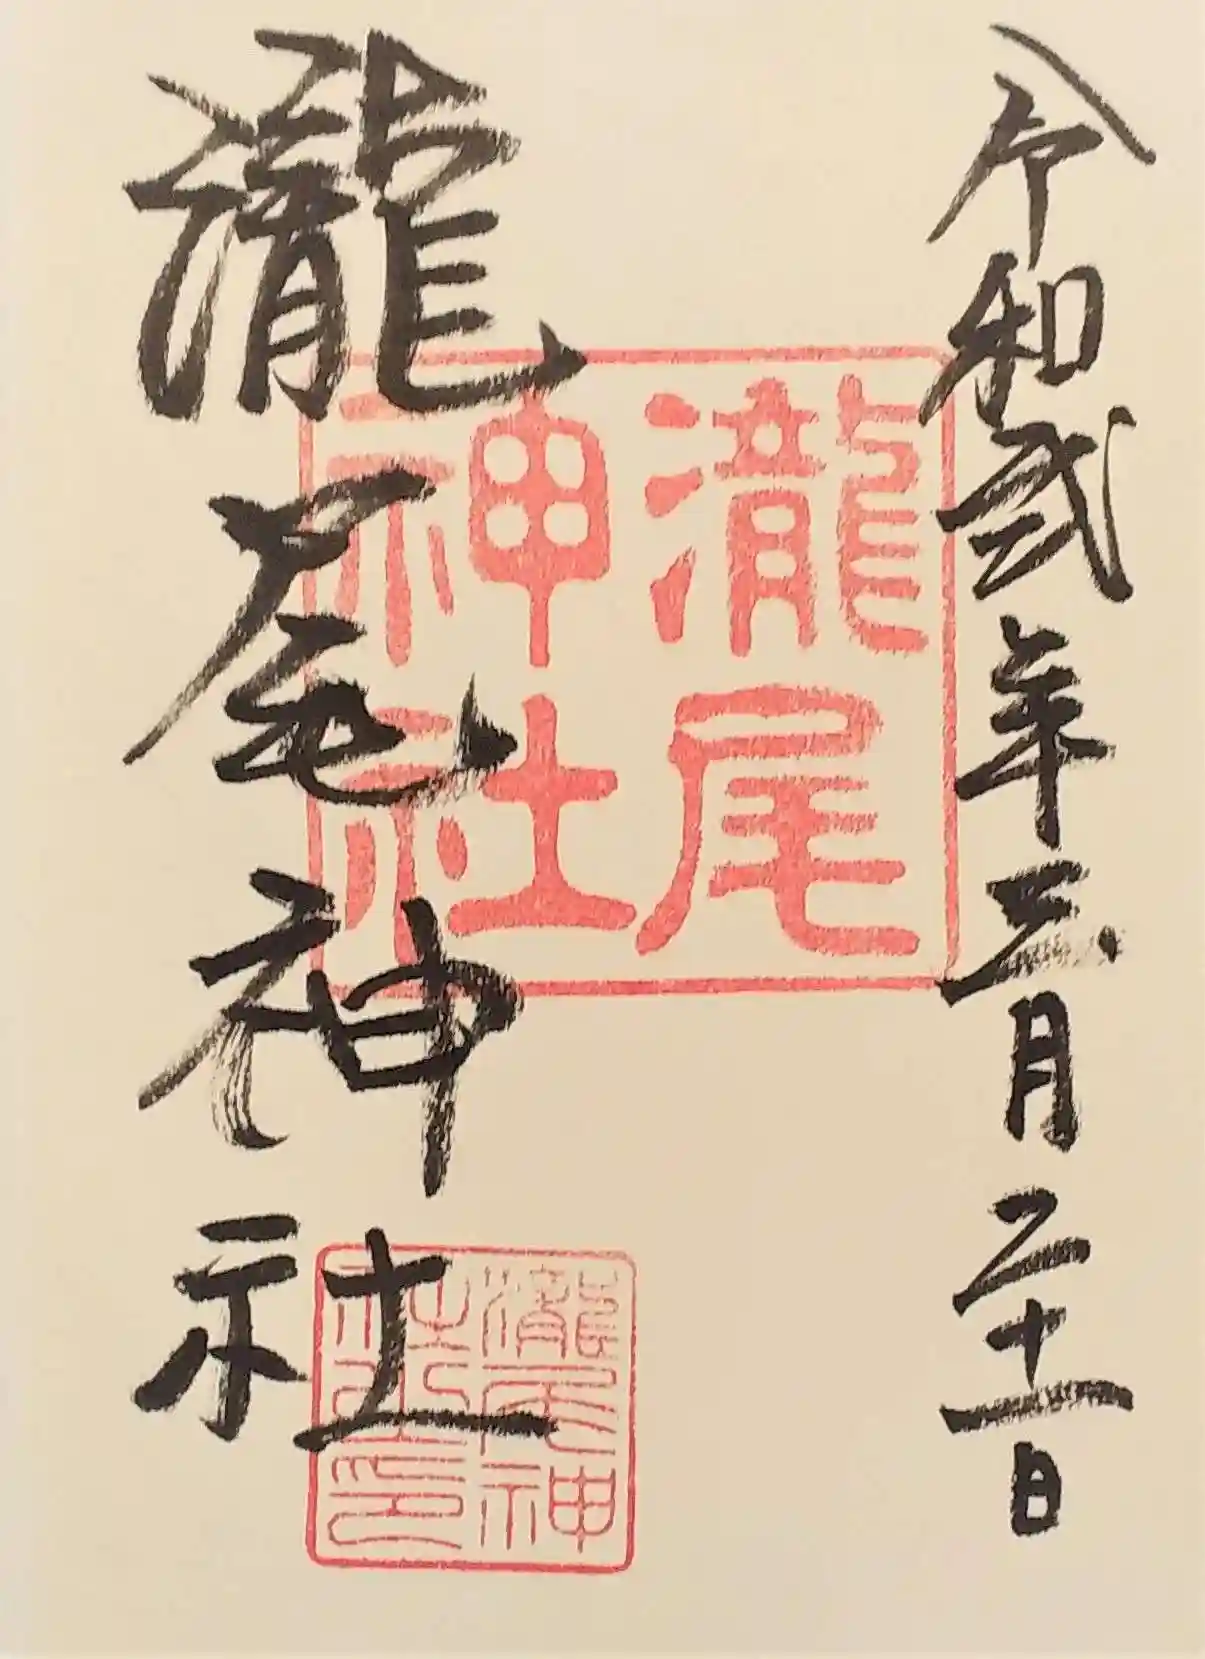 令和弐年三月二十一日
瀧尾
神社
瀧尾神社
瀧尾神
社之印